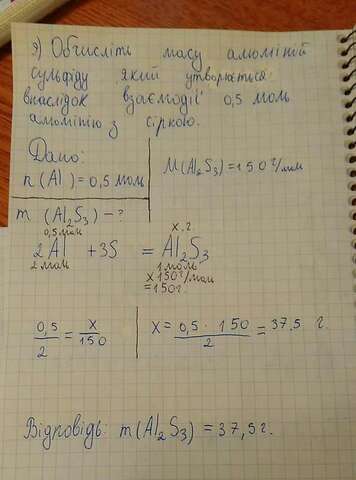 я) Обчисліть масу алюміній
сульфіду який утворюється
внаслідок взаємодії 0,5 моль
алюмінію з сіркою.
Дано:
n(Al)=0,5 моль
M(Al₂S₃)=150 г/моль
m (Al₂S₃) – ?
0,5 моль x, г.
2Al + 3S = Al₂S₃
2 моль 1 моль
x 150 г/моль
=150г.
0,5/2 = x/150
x = 0,5 · 150/2 = 37.5 г.
Відповідь: m(Al₂S₃) = 37,5г.